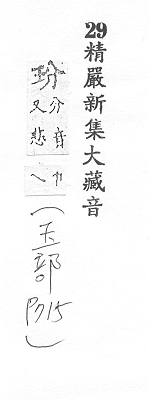 29精嚴新集大藏音
玢
分音巾
又悲乀
(玉部 P15)